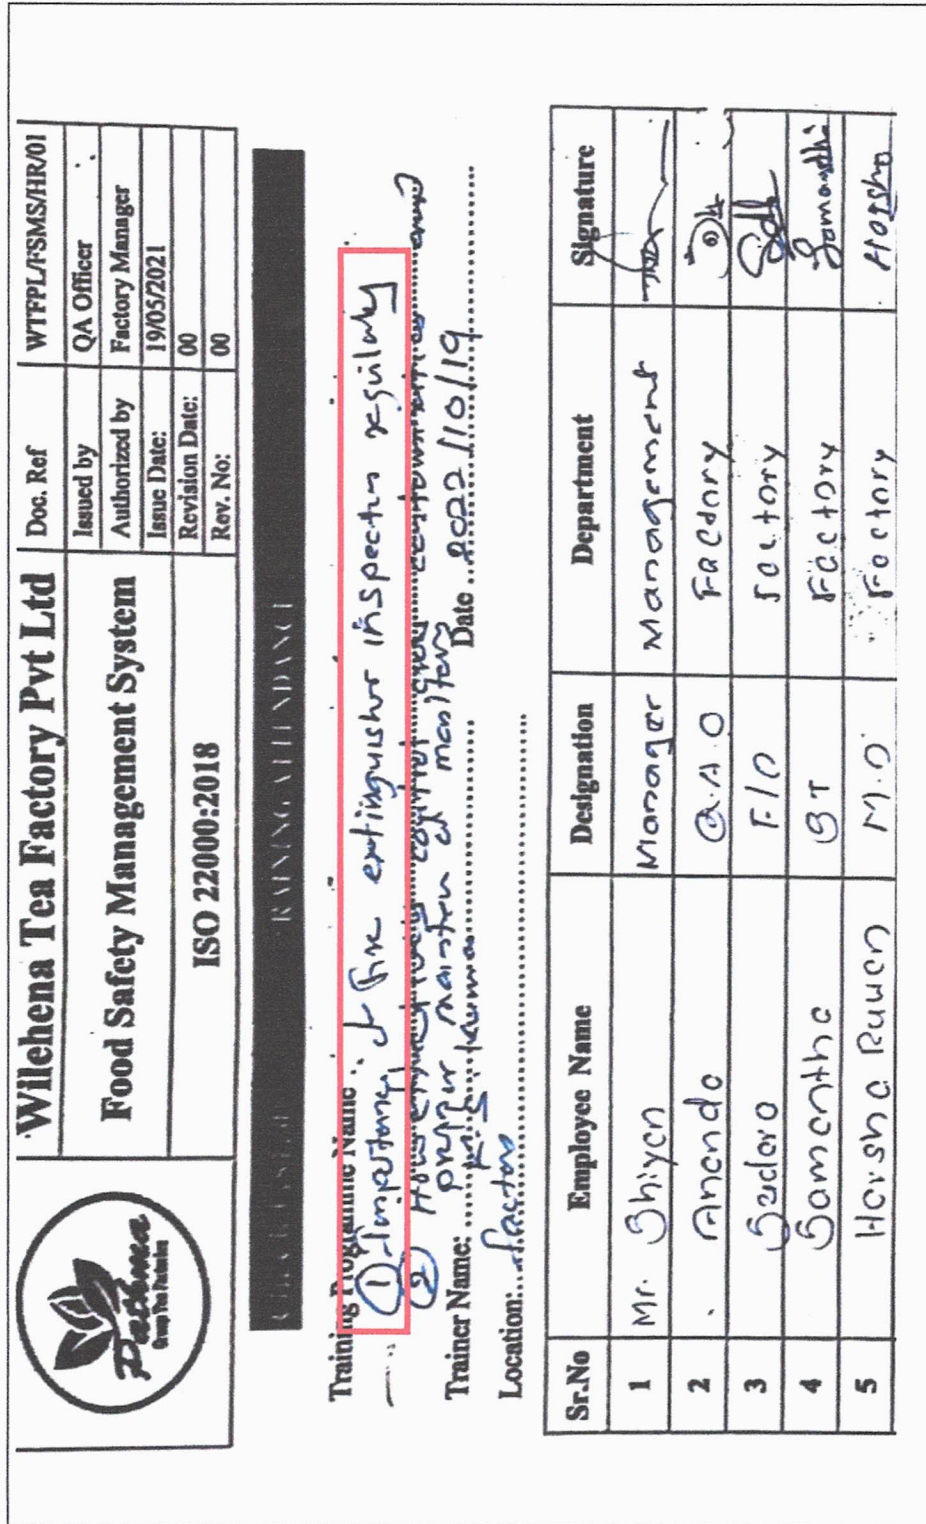 Pathma
Group Tea Factories
Wilehena Tea Factory Pvt Ltd
Food Safety Management System
ISO 22000:2018
Doc. Ref WTFPL/FSMS/HR/01
Issued by QA Officer
Authorized by Factory Manager
Issue Date: 19/05/2021
Revision Date: 00
Rev. No: 00
TRAINING ATTENDANCE
Training Programme Name
① Importance of fire extinguisher inspection regularly
②
proper
Trainer Name: K.S. Kumara Date 2022/10/19
Location: factory
Sr.No Employee Name Designation Department Signature
1 Mr. Shiyan Manager Management
2 Ananda Q.A.O Factory
3 Sadara F/O Factory
4 Samantha ST Factory Samanthi
5 Harsha Ruwan M.O Factory Harsha